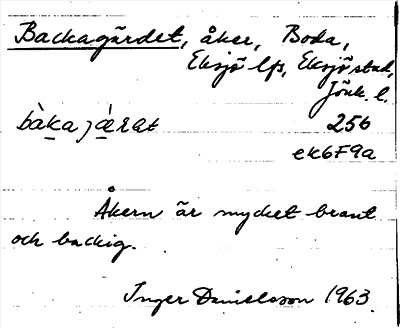 Backagärdet, åker, Boda,
Eksjö lfs, Eksjö stad,
Jönk. l.
bàka jæ̀ṛat 256
ek6F9a
Åkern är mycket brant
och backig.
Inger Danielsson 1963